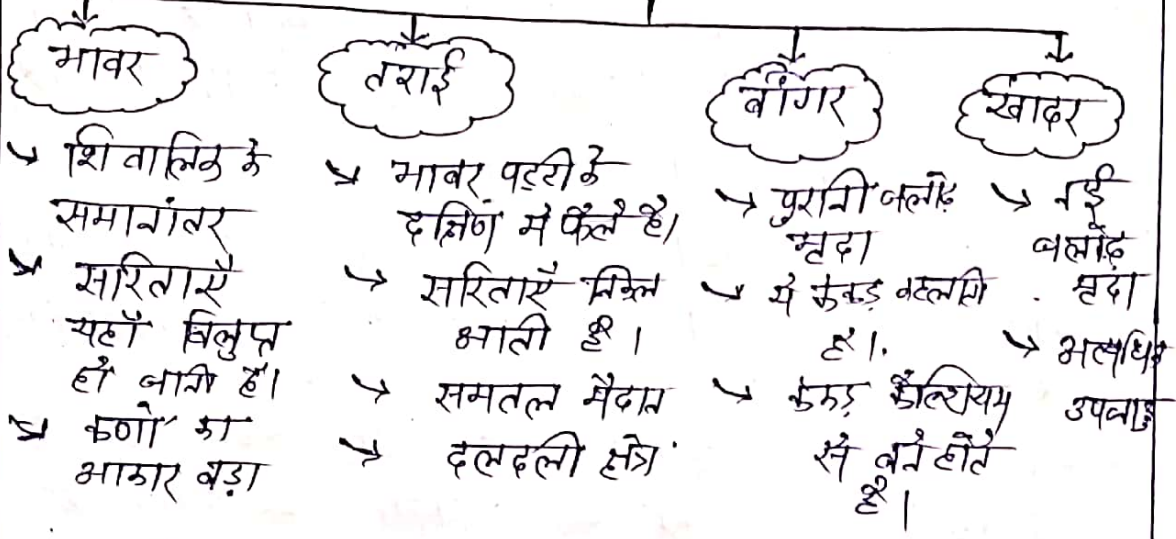 भावर
शिवालिक के
समानांतर
सरिताएँ
यहाँ विलुप्त
हो जाती है।
कणों का
आकार बड़ा
तराई
भाबर पट्टी के
दक्षिण में फैले है।
सरिताएँ निकल
आती है।
समतल मैदान
दलदली क्षेत्र
बाँगर
पुरानी जलोढ़
मृदा
ये कंकड़ कहलाती
है।
कंकड़ कैल्शियम
से बने होते
है।
खादर
नई
जलोढ़
मृदा
अत्यधिक
उपजाऊ